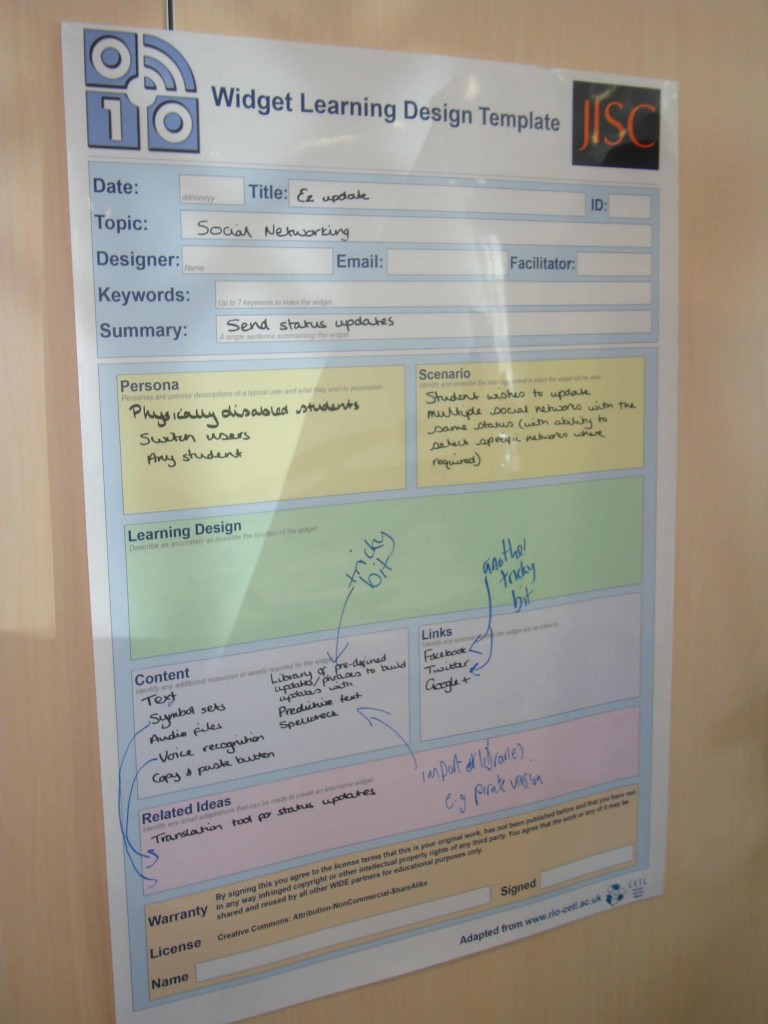 Widget Learning Design Template
JISC
Date:
dd/mm/yy
Title: Ez update
ID:
Topic: Social Networking
Designer:
Name
Email:
Facilitator:
Keywords:
Up to 7 keywords to index the widget
Summary: Send status updates
A single sentence summarising this widget
Persona
Personas are precise descriptions of a typical user and what they wish to accomplish
Physically disabled students
Switch users
Any student
Scenario
Student wishes to update
multiple social networks with the
same status (with ability to
select specific networks where
required)
Learning Design
Describe as accurately as possible the function of the widget
tricky
bit
another
tricky
bit
Content
Identify any additional resources or assets required for the widget
Text
Symbol sets
Audio files
Voice recognition
Copy & paste button
Library of pre-defined
updates/phrases to build
updates with
Predictive text
Spellcheck
Links
Facebook
Twitter
Google+
import
e.g pirate version
Related Ideas
Identify any small adaptations that can be made to create an alternative widget
Translation tool for status updates
Warranty
By signing this you agree to the license terms that this is your original work, has not been published before and that you have not
in any way infringed copyright or other intellectual property rights of any third party. You agree that the work or any of it may be
shared and reused by all other WIDE partners for educational purposes only.
License
Creative Commons: Attribution-NonCommercial-ShareAlike
Name
Signed
Adapted from www.rlo-cetl.ac.uk
CETL